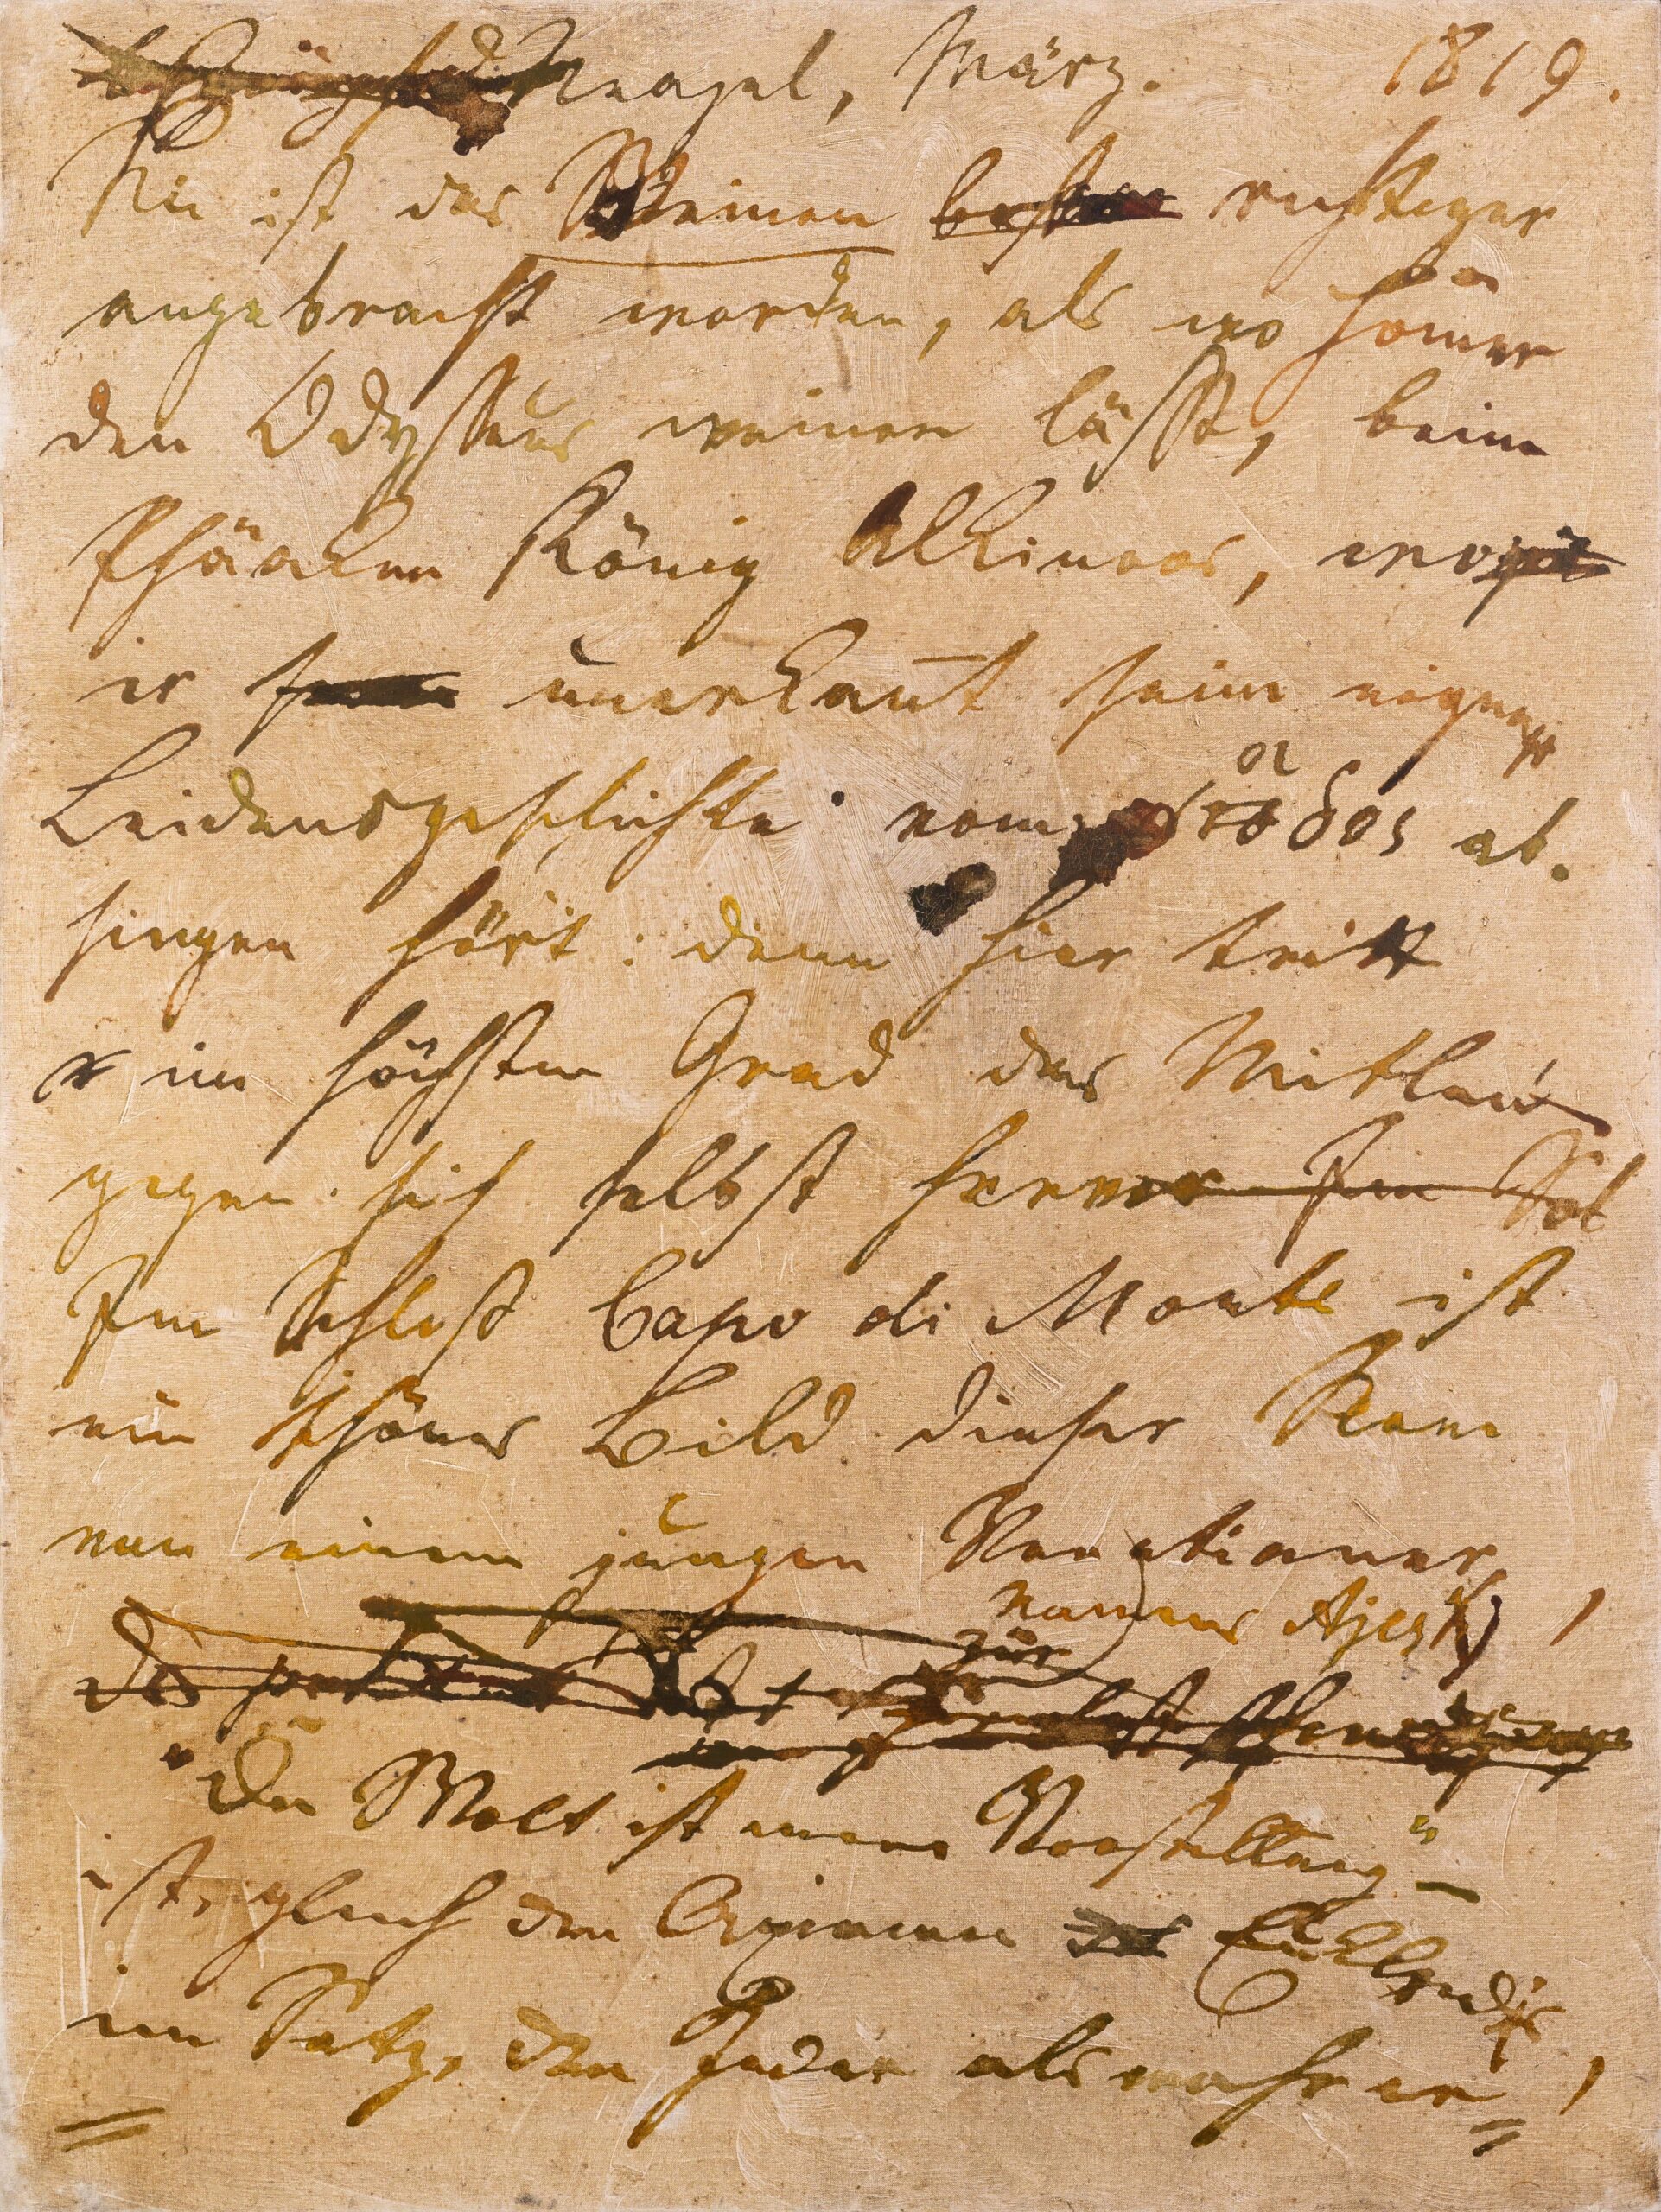 Neapel, März. 1819.
Nie ist das Weinen richtiger
angebracht worden, als wo Homer
den Odysseus weinen lässt, beim
Phäaken König Alkinoos, wo
er unerkañt seine eigene
Leidensgeschichte vom ἀοιδος ab-
singen hört: denn hier tritt
er im höchsten Grad des Mitleids
gegen sich selbst hervor Im
Im Schloß Capo di Monte ist
ein schönes Bild dieser Scene
von einem jungen Venetianer,
namens Ajes
zur
"Die Welt ist meine Vorstellung" –
ist, gleich den Axiomen Euklids
ein Satz, den Jeder als wahr er=